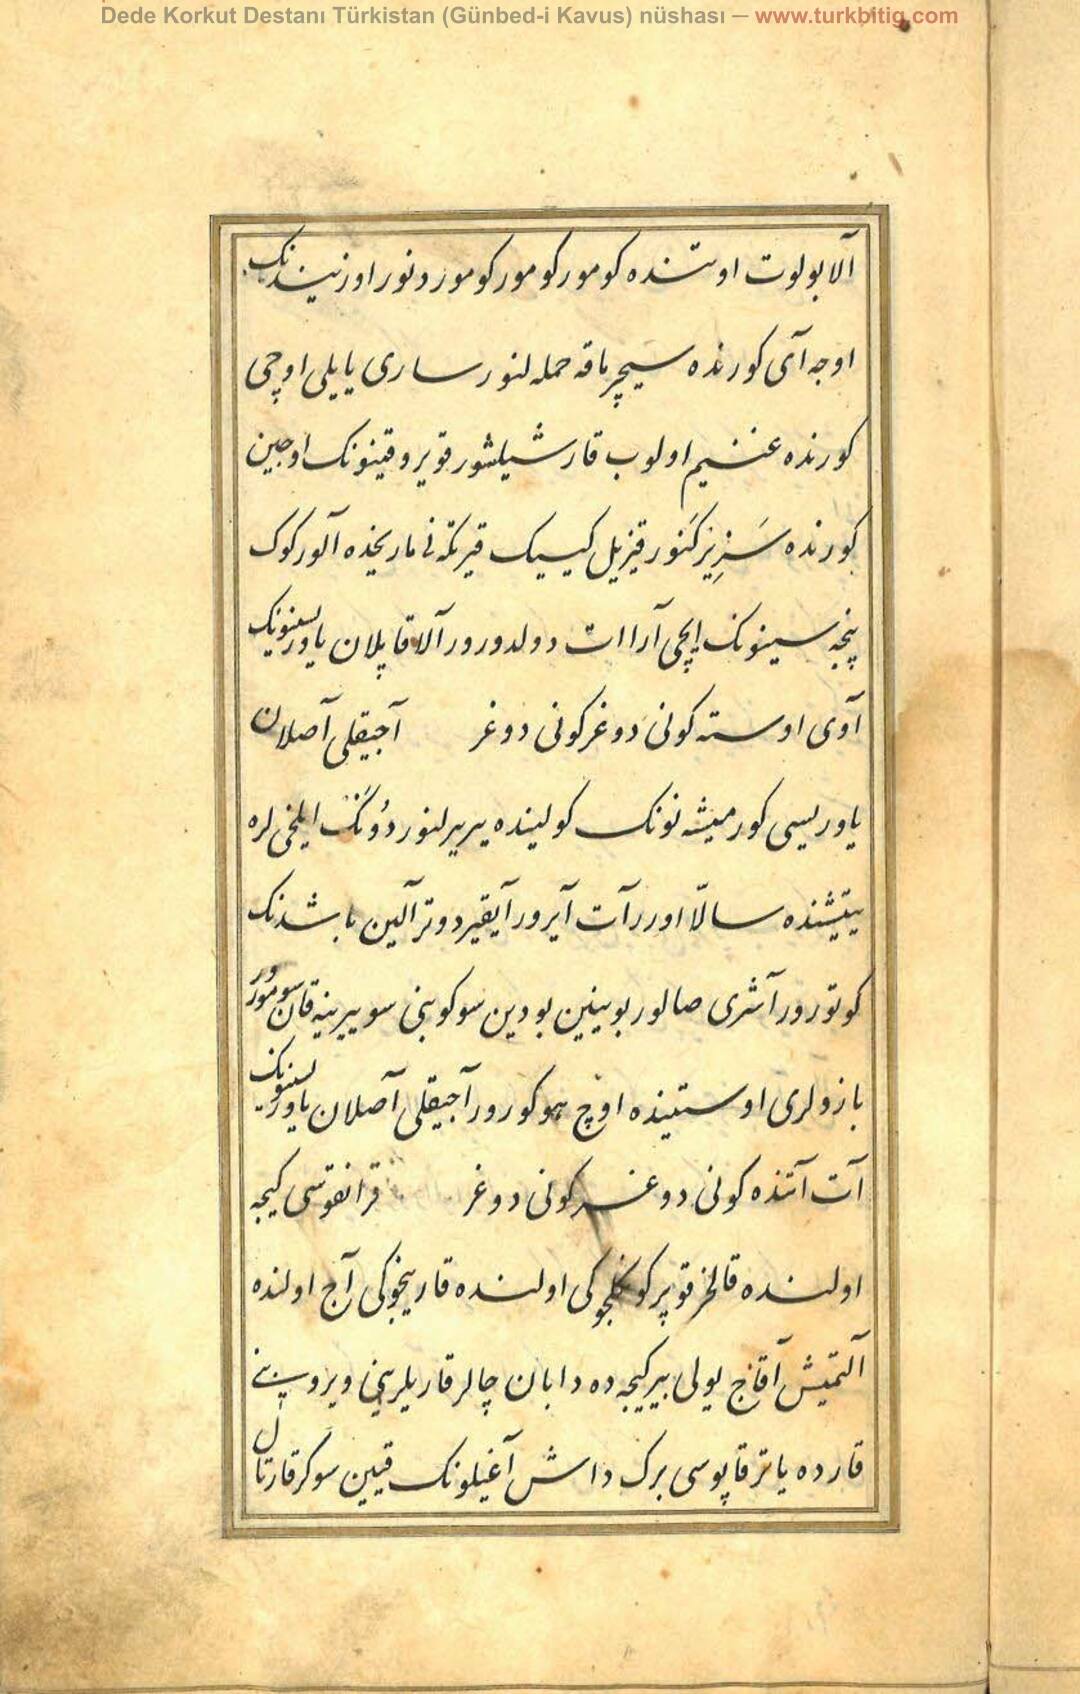 Dede Korkut Destanı Türkistan (Günbed-i Kavus) nüshası — www.turkbitig.com
آلا بولوت اوستنده کومور کومور کومور دونور اوزنیندنک
اوجه آی کورنده سیچرماقه حمله لنور ساری یایلی اوچی
کورنده غنیم اولوب قارشیلشور قویروقینونک اوجین
کورنده سَزِیز کَنور قیزیل کیییک قیرتکه نی ماریخذه آلور کوک
پنجه سینونک ایچی آرا ات دولدورور آلا قاپلان یاوریسنونک
آوی اوسته کونی دوغر کونی دوغر آجیقلی آصلان
یاوریسی کورمیشه نونک کولینده یریرلنور دُونَک ایلخی لره
یتیشنده سالّا اورر آت آیرور آیقیر دوتر آلین باشدنک
کوتورور آشری صالور بوینین بودین سوکوبنی سوییرینه قان سومورور
بازولری اوستینده اوچ هوکورور آجیقلی آصلان یاوریسنونک
آت آتنده کونی دوغر کونی دوغر قرانقوسی کیجه
اولنده قالخر قوپر کی اولنده قاریخوکی آج اولنده
آلتمیش آقاج یولی بیر کیجه ده دابان چالر قاریلرینی ویروبنی
قارده یاتر قاپوسی برک داش آغیلونک قیین سوکر قارتال